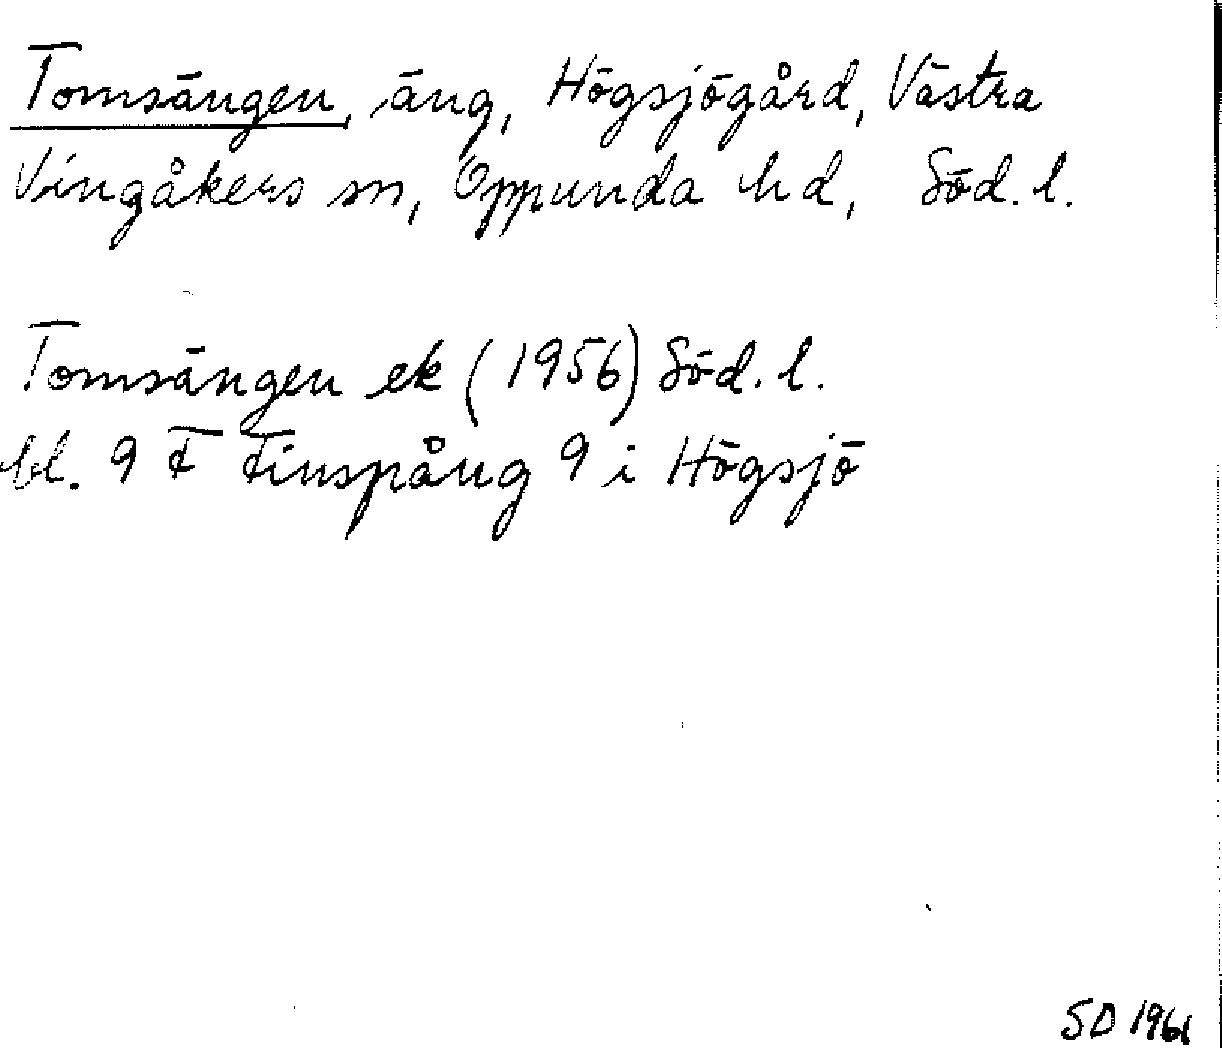 Tomsängen, äng, Högsjögård, Västra
Vingåkers sn, Oppunda hd, Söd. l.
Tomsängen ek (1956) Söd. l.
bl. 9 F Finspång 9 i Högsjö
SD 1961